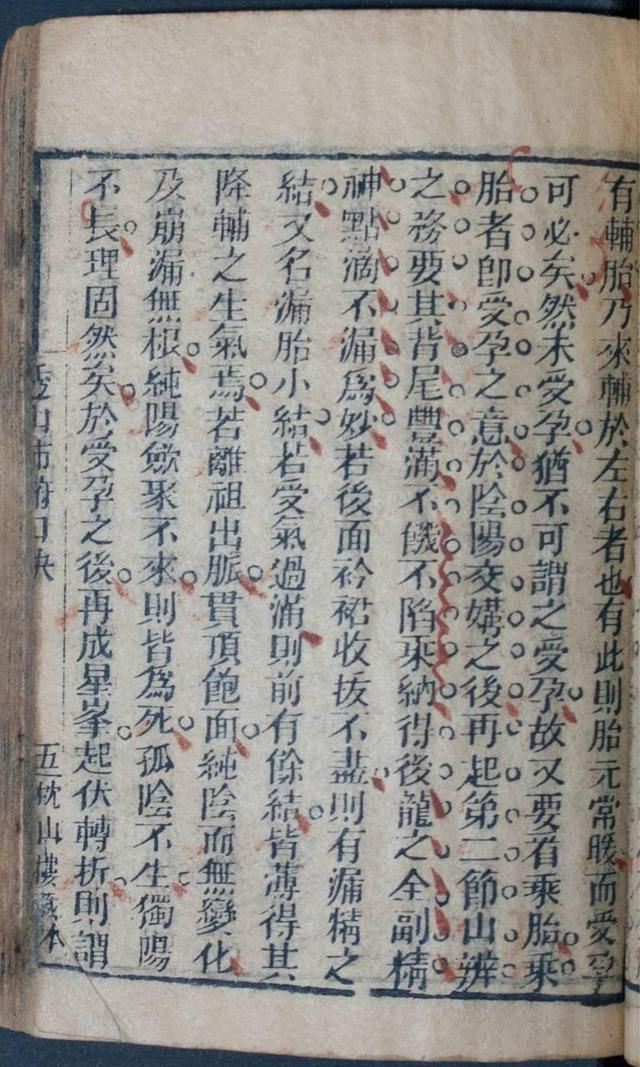 有輔胎乃來輔於左右者也有此則胎元常暖而受孕
可必矣然未受孕猶不可謂之受孕故又要看乘胎乘
胎者卽受孕之意於陰陽交媾之後再起第二節山辨
之務要其背尾豐滿不饑不陷乘納得後龍之全副精
神點滴不漏爲妙若後面衿裙收拔不盡則有漏精之
結又名漏胎小結若受氣過滿則前有餘結皆薄得其
降輔之生氣焉若離祖出脈貫頂飽面純陰而無變化
及崩漏無根純陽歛聚不來則皆爲死孤陰不生獨陽
不長理固然矣於受孕之後再成星峯起伏轉折則謂
山 口
五 枕山樓藏本